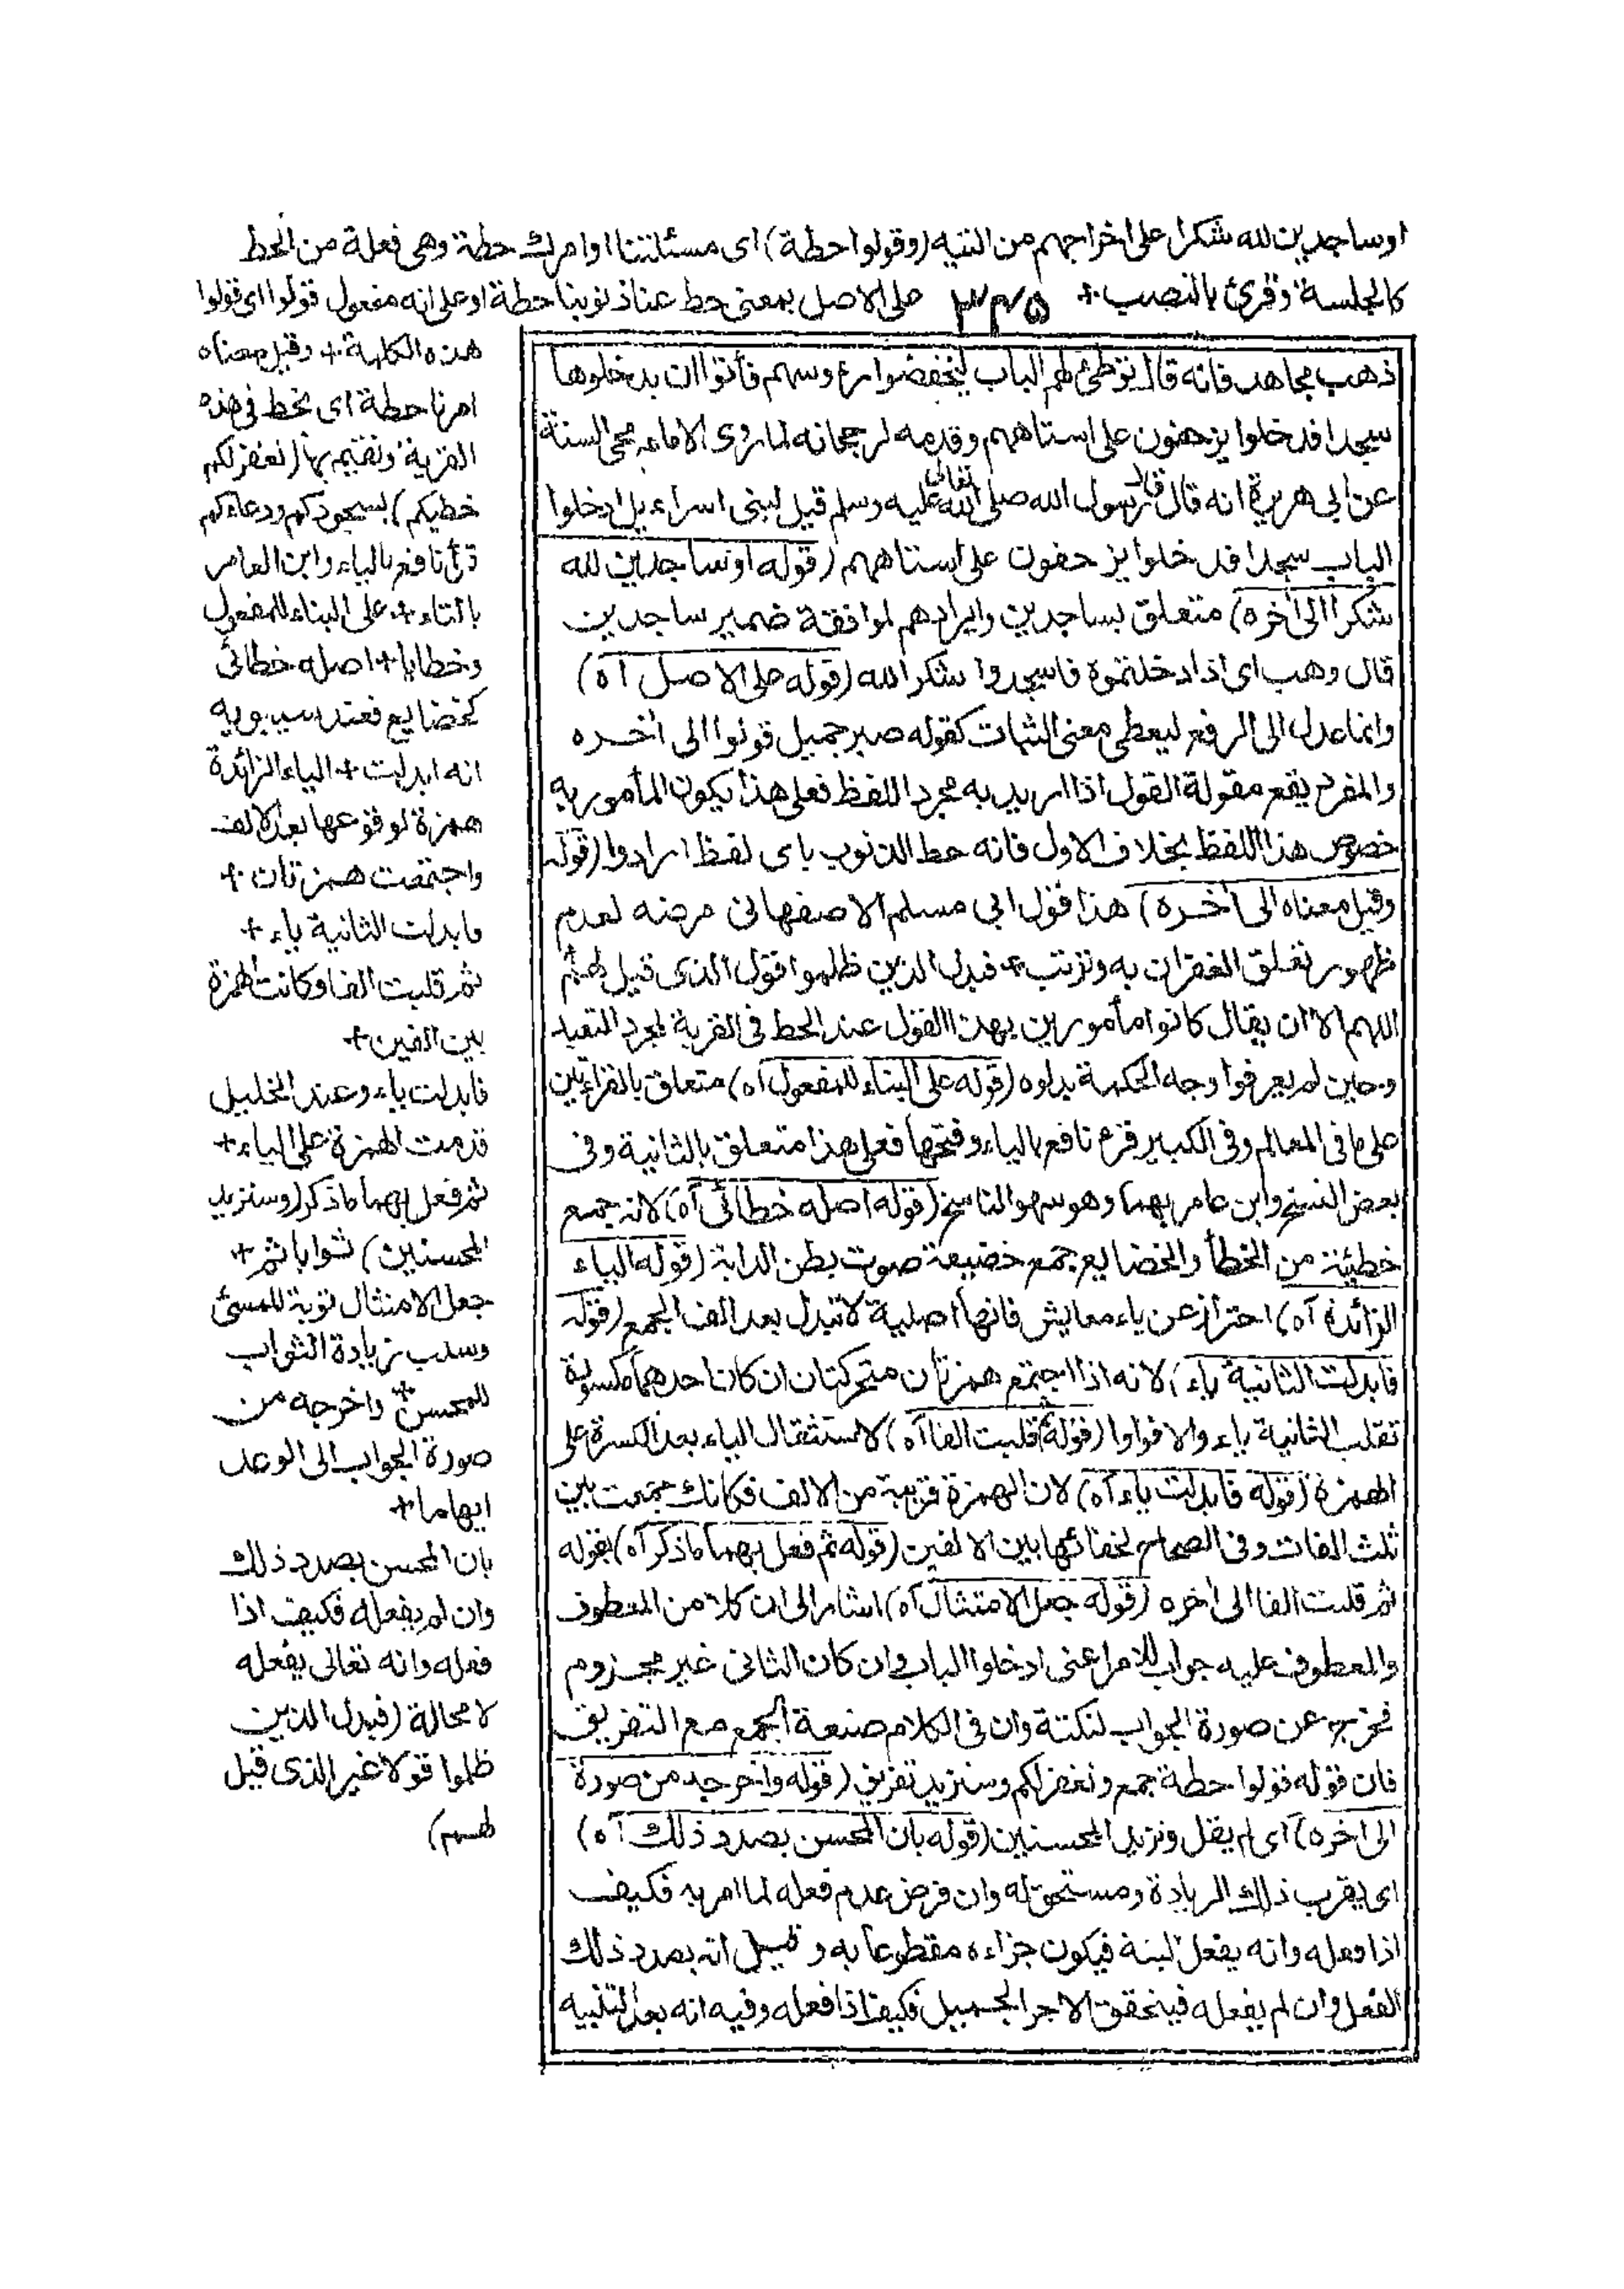 او ساجدين لله شكرا على اخراجهم من التيه (وقولوا حطة) اى مسئلتنا او امرك حطة وهى فعلة من الحط
كالجلسة وقرئ بالنصب + ٣٤٥ على الاصل بمعنى حط عنا ذنوبنا حطة او على انه مفعول قولوا اى قولوا
هذه الكلمة + وقيل معناه
امرنا حطة اى نحط فى هذه
القرية ونقيم بها (نغفر لكم
خطيكم) بسجودكم ودعاءكم
قرأ نافع بالياء وابن العامر
بالتاء + على البناء للمفعول
وخطايا + اصله خطائئ
كخضايع فعند سيبويه
انه ابدلت + الياء الزائدة
همزة لوقوعها بعد الالف
واجتمعت همزتان +
فابدلت الثانية ياء +
ثم قلبت الفا وكانت الهمزة
بين الفين +
فابدلت ياء وعند الخليل
قدمت الهمزة على الياء +
ثم فعل بهما ما ذكر (وسنزيد
المحسنين) ثوابا ثم +
جعل الامتثال توبة للمسئ
وسبب زيادة الثواب
للمحسن + واخرجه من
صورة الجواب الى الوعد
ايهاما +
بان المحسن بصدد ذلك
وان لم يفعله فكيف اذا
فعله وانه تعالى يفعله
لا محالة (فبدل الذين
ظلموا قولا غير الذى قيل
لهم)
ذهب مجاهد فانه قال توطئ لهم الباب ليخفضوا رءوسهم فأتوا ان يدخلوها
سجدا فدخلوا يزحفون على استاههم وقدمه لرجحانه لما روى الامام محى السنة
عن ابى هريرة انه قال قال رسول الله صلى الله تعالى عليه وسلم قيل لبنى اسراءيل ادخلوا
الباب سجدا فدخلوا يزحفون على استاههم (قوله او ساجدين لله
شكرا الى أخره) متعلق بساجدين وايرادهم لموافقة ضمير ساجدين
قال وهب اى اذا دخلتموه فاسجدوا شكر الله (قوله على الاصل آه)
وانما عدل الى الرفع ليعطى معنى الثبات كقوله صبر جميل قولوا الى أخره
والمفرد يقع مقولة القول اذا اريد به مجرد اللفظ فعلى هذا يكون المأمور به
خصوص هذا اللفظ بخلاف الاول فانه حط الذنوب باى لفظ ارادوا (قوله
وقيل معناه الى أخره) هذا قول ابى مسلم الاصفهانى مرضه لعدم
ظهور تعلق الغفران به وترتب + فبدل الذين ظلموا قول الذى قيل لهم
اللهم الا ان يقال كانوا مأمورين بهذا القول عند الحط فى القرية لمجرد التعبد
وحين لم يعرفوا وجه الحكمة بدلوه (قوله على البناء للمفعول آه) متعلق بالقراءتين
على ما فى المعالم وفى الكبير قرء نافع بالياء وفتحها فعلى هذا متعلق بالثانية وفى
بعض النسخ وابن عامر بهما وهو سهو الناسخ (قوله اصله خطائئ آه) لانه جمع
خطيئة من الخطأ والخضايع جمع خضيعة صوت بطن الدابة (قوله الياء
الزائدة آه) احتراز عن ياء معايش فانها اصلية لا تبدل بعد الف الجمع (قوله
فابدلت الثانية ياء) لانه اذا اجتمع همزتان متحركتان ان كان احدهما مكسورة
تقلب الثانية ياء والا فواوا (قوله ثم قلبت الفا آه) لاستثقال الياء بعد الكسرة على
الهمزة (قوله فابدلت ياء آه) لان الهمزة قريبة من الالف فكانك جمعت بين
ثلث الفات وفى الصحاح لخفائها بين الالفين (قوله ثم فعل بهما ما ذكر آه) بقوله
ثم قلبت الفا الى أخره (قوله جعل الامتثال آه) اشار الى ان كلا من المعطوف
والمعطوف عليه جواب للامر اعنى ادخلوا الباب وان كان الثانى غير مجزوم
فخرج عن صورة الجواب لنكتة وان فى الكلام صنعة الجمع مع التفريق
فان قوله قولوا حطة جمع ونغفر لكم وسنزيد تفريق (قوله واخرجه من صورة
الى اخره) اى لم يقل ونزيد المحسنين (قوله بان المحسن بصدد ذلك آه)
اى يقرب ذلك الزيادة ومستحق له وان فرض عدم فعله لما امر به فكيف
اذا فعله وانه يفعل البتة فيكون جزاءه مقطوعا به وقيل انه بصدد ذلك
الفعل وان لم يفعله فيتحقق الاجر الجميل فكيف اذا فعله وفيه انه بعد التنبيه